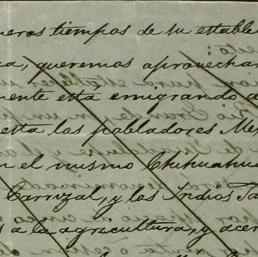 meros tiempos de su estable
queremos aprovechar
mente está emigrando a
esta los pobladores Me
n el mismo Chihuahua
Carrizal, y los Indios Ta
s a la agricultura, y acer